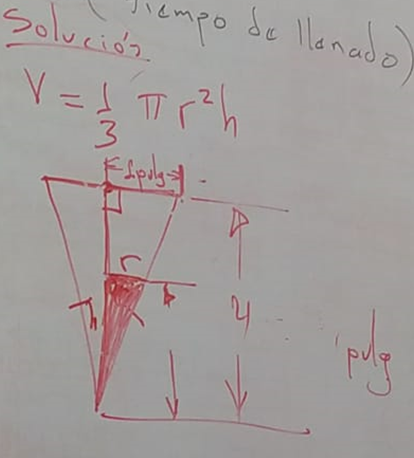 (Tiempo de llenado)
Solución
V = 1/3 π r²h
1pulg
r
h
4
pulg